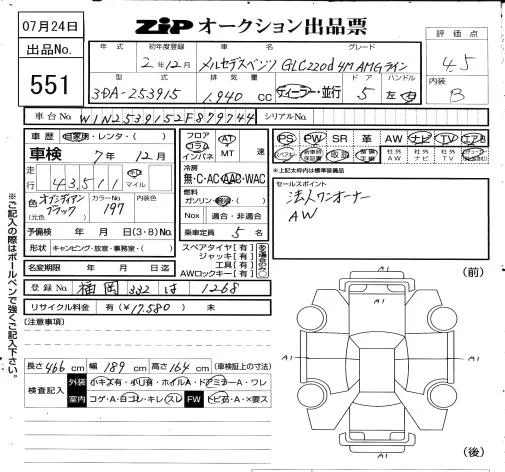 07月24日
ZIP オークション出品票
出品No.
551
評価点
4.5
内装
B
年式 初年度登録 車名 グレード
2年12月 メルセデスベンツ GLC220d 4M AMGライン
型式 排気量 ドア ハンドル
3DA-253915 1,940 cc ディーラー・並行 5 左・右
車台No. W1N2539152F879744 シリアルNo.
車歴 自家用・レンタ・( )
車検 7年 12月
走行 43,511 キロ マイル
色 オブシディアンブラック カラーNo. 197
(元色)
予備検 年 月 日(3・8)No.
形状 キャンピング・放室・事務室・( )
名変期限 年 月 日迄
フロア コラム インパネ AT MT 速
冷房
無・C・AC・AAC・WAC
燃料
ガソリン・軽油・( )
Nox 適合・非適合
乗車定員 5 名
スペアタイヤ【有】
ジャッキ【有】
工具【有】
AWロックキー【有】
PS PW SR 革 AW ナビ TV エアB
取説
社外AW 社外ナビ 社外TV
*上記太枠内は標準装備品
セールスポイント
法人ワンオーナー
AW
登録No. 福岡 332 は 1268
リサイクル料金 有(¥17,580) 未
[注意事項]
※ご記入の際はボールペンで強くご記入下さい。
(前)
A1
A1
A1
A1
(後)
長さ 466 cm 幅 189 cm 高さ 164 cm (車検証上の寸法)
検査記入 外装 小キズ有・小凹有・ホイルA・ドアミラーA・ワレ
室内 コゲ・A・凹コレ・キレ・スレ FW トビ石・A・×要ス